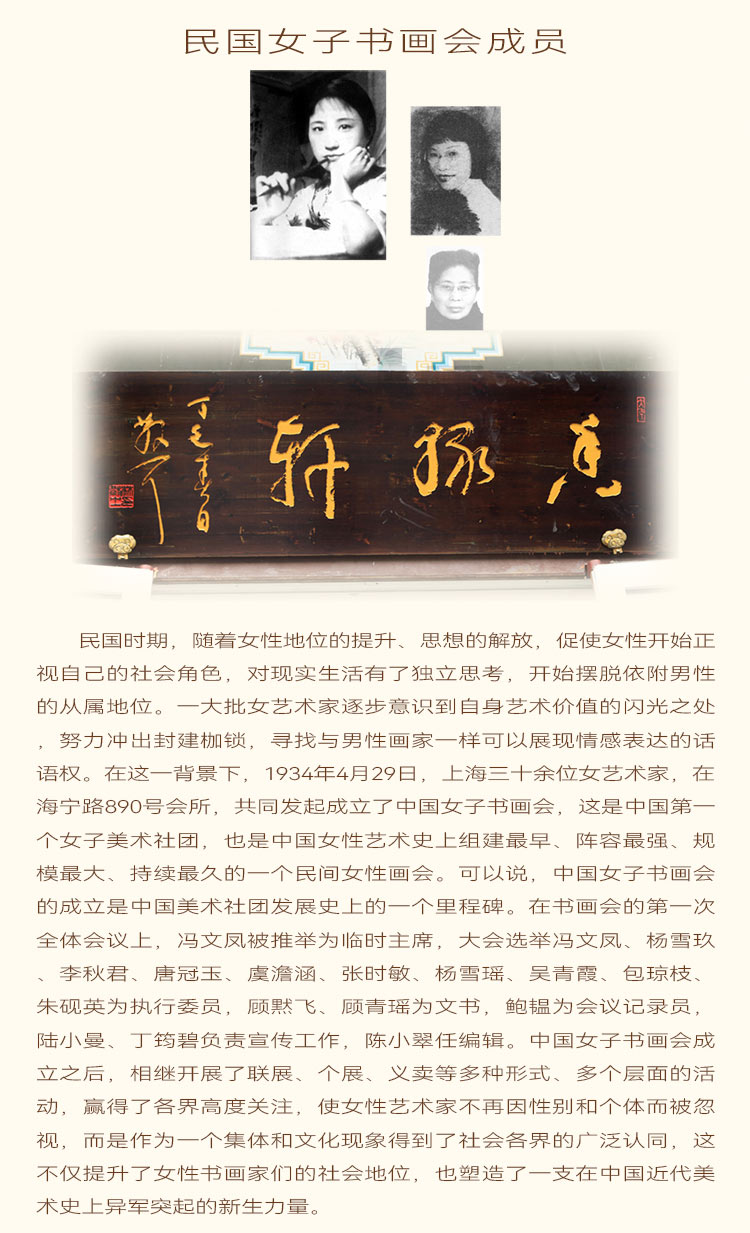 民国女子书画会成员
軒
民国时期，随着女性地位的提升、思想的解放，促使女性开始正
视自己的社会角色，对现实生活有了独立思考，开始摆脱依附男性
的从属地位。一大批女艺术家逐步意识到自身艺术价值的闪光之处
，努力冲出封建枷锁，寻找与男性画家一样可以展现情感表达的话
语权。在这一背景下，1934年4月29日，上海三十余位女艺术家，在
海宁路890号会所，共同发起成立了中国女子书画会，这是中国第一
个女子美术社团，也是中国女性艺术史上组建最早、阵容最强、规
模最大、持续最久的一个民间女性画会。可以说，中国女子书画会
的成立是中国美术社团发展史上的一个里程碑。在书画会的第一次
全体会议上，冯文凤被推举为临时主席，大会选举冯文凤、杨雪玖
、李秋君、唐冠玉、虞澹涵、张时敏、杨雪瑶、吴青霞、包琼枝、
朱砚英为执行委员，顾默飞、顾青瑶为文书，鲍韫为会议记录员，
陆小曼、丁筠碧负责宣传工作，陈小翠任编辑。中国女子书画会成
立之后，相继开展了联展、个展、义卖等多种形式、多个层面的活
动，赢得了各界高度关注，使女性艺术家不再因性别和个体而被忽
视，而是作为一个集体和文化现象得到了社会各界的广泛认同，这
不仅提升了女性书画家们的社会地位，也塑造了一支在中国近代美
术史上异军突起的新生力量。